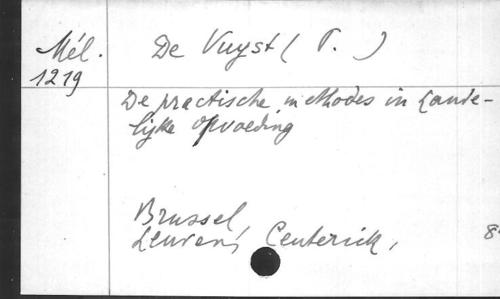 Mél. De Vuyst (P. )
1219
De practische methodes in Lande-
lijke opvoeding
Brussel
Leuven, Ceuterick,
8°